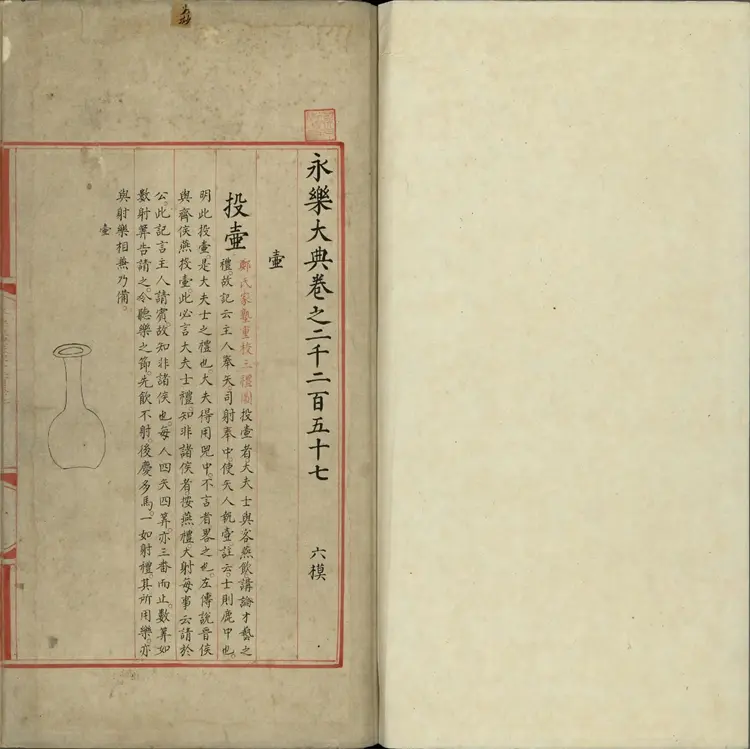 永樂大典卷之二千二百五十七 六模
壷
投壷 鄭氏家塾重校三禮圖投壷者大夫士與客燕飲講論才藝之
禮。故記云主人奉矢。司射奉中。使矢人執壷註云。士則鹿中也。
明此投壷。是大夫士之禮也。大夫得用兕中。不言者畧之也。左傳說晋侯
與齊侯燕投壷。此必言大夫士禮。知非諸侯者。按燕禮大射每事云請於
公。此記言主人請賔。故知非諸侯也。每人四矢四筭。亦三畨而止。數筭如
數射筭告請之。令聽樂之節。先飲不射。後慶多馬。一如射禮其所用樂。亦
與射樂相兼乃備。
壷